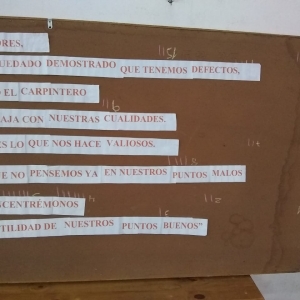 ORES,
UEDADO DEMOSTRADO QUE TENEMOS DEFECTOS,
O EL CARPINTERO
AJA CON NUESTRAS CUALIDADES.
ES LO QUE NOS HACE VALIOSOS.
E NO PENSEMOS YA EN NUESTROS PUNTOS MALOS
NCENTRÉMONOS
TILIDAD DE NUESTROS PUNTOS BUENOS"